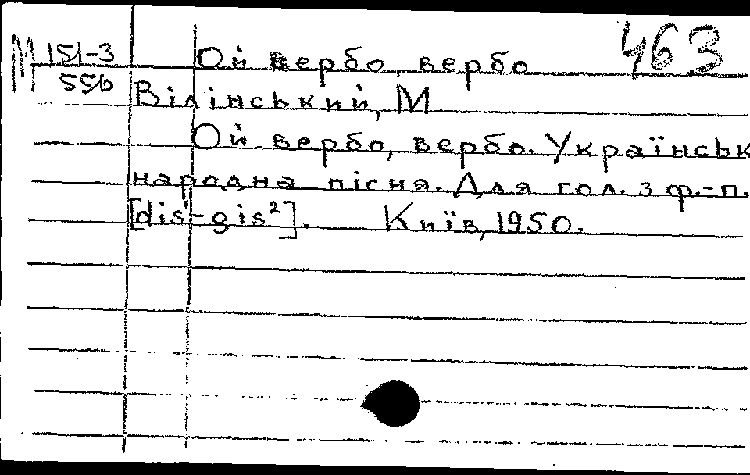 М 151-3 Ой вербо, вербо 463
556 Вілінський, М
Ой вербо, вербо. Українськ
народна пісня. Для гол. з ф.-п.
[dis¹-gis²]. Київ, 1950.